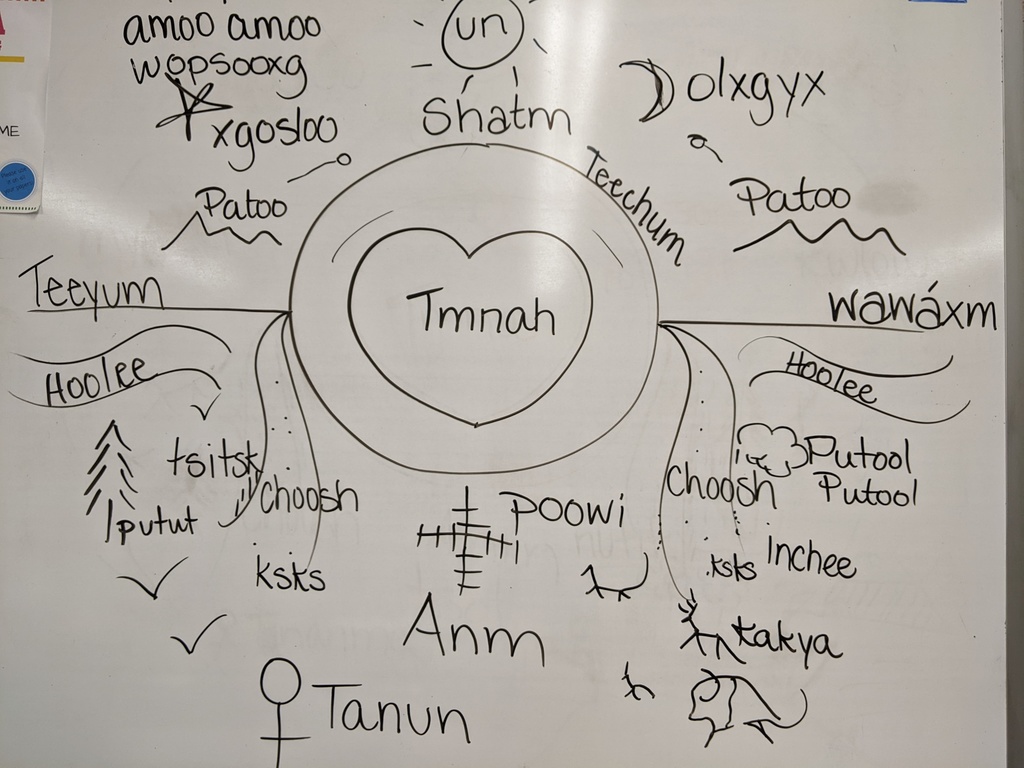 amoo amoo
wopsooxg
xgosloo
un
Shatm
olxgyx
Patoo
Teechum
Patoo
Teeyum
Tmnah
wawáxm
Hoolee
Hoolee
tsitsk
putut
Choosh
ksks
Poowi
Choosh
Putool
Putool
ksks
inchee
Anm
takya
Tanun
ME